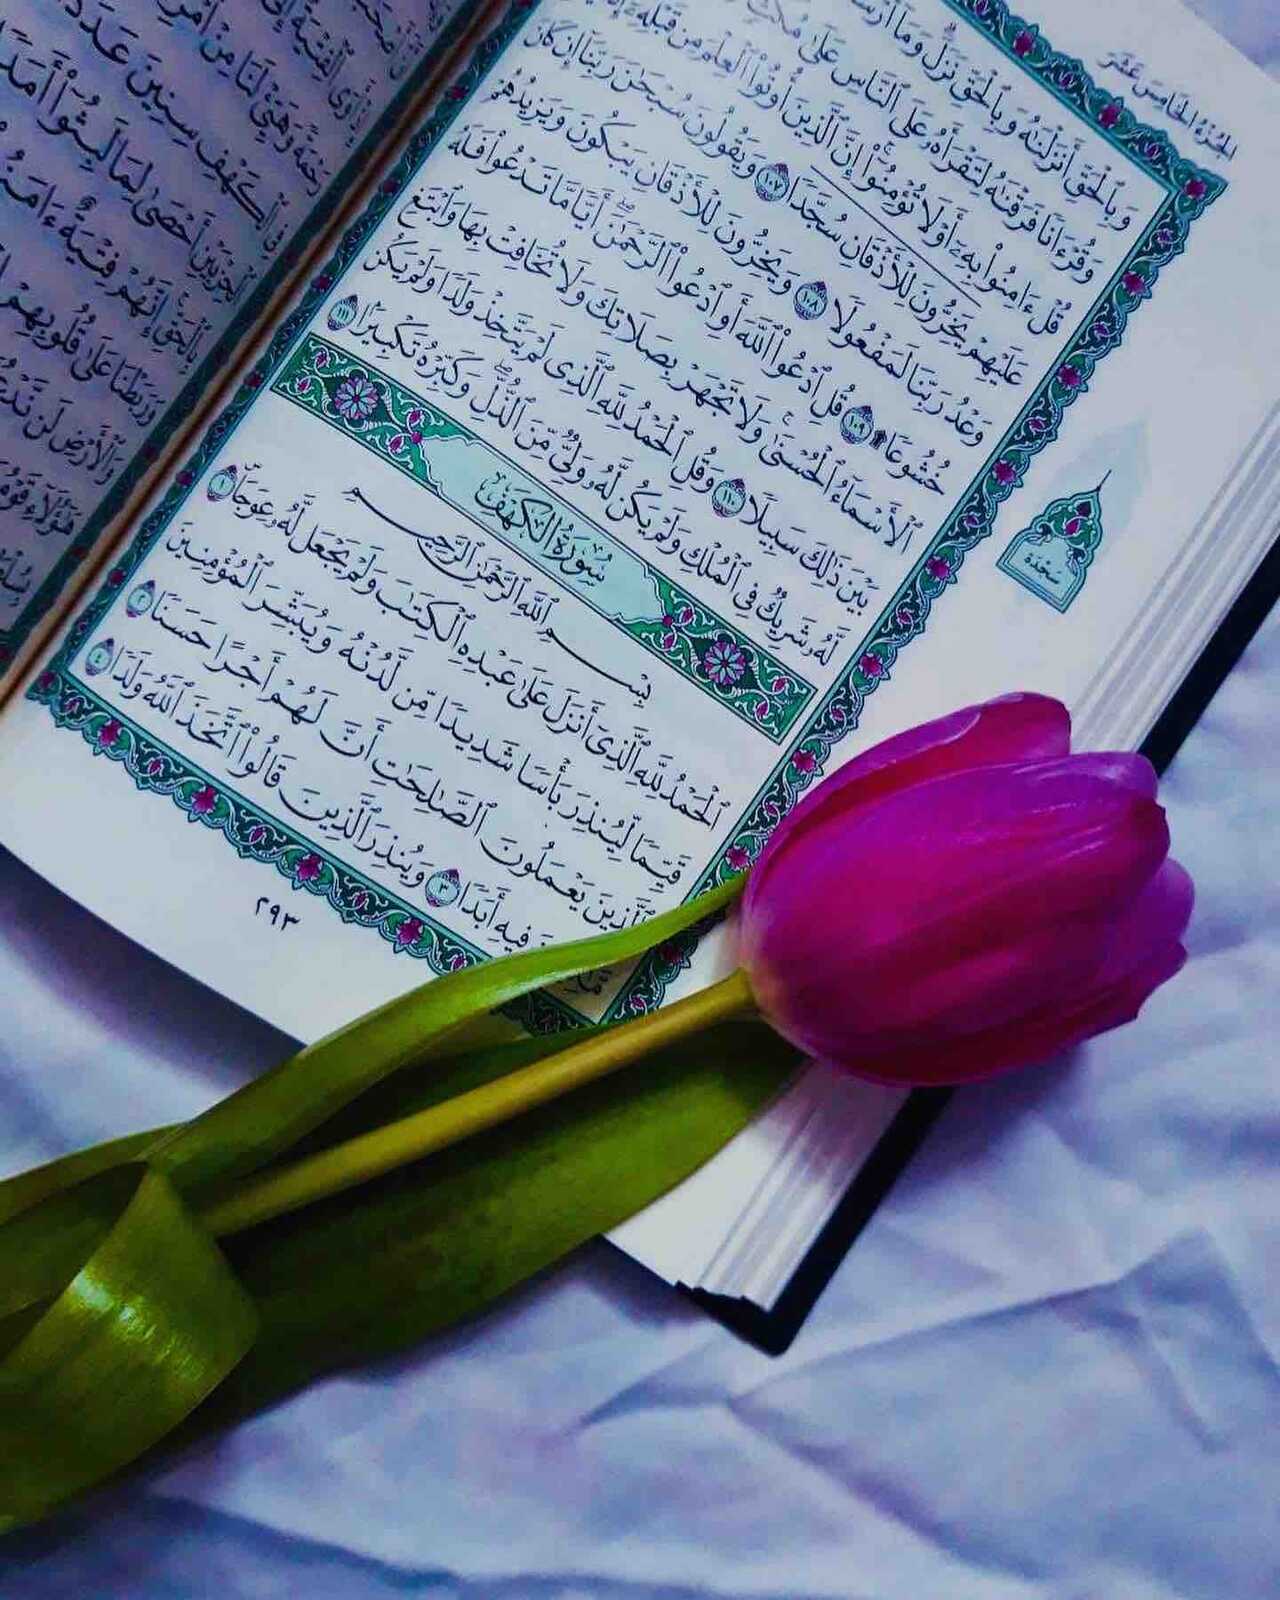 الجزء الخامس عشر
وَبِٱلْحَقِّ أَنزَلْنَٰهُ وَبِٱلْحَقِّ نَزَلَ وَمَا أَرْسَ
وَقُرْءَانًا فَرَقْنَٰهُ لِتَقْرَأَهُۥ عَلَى ٱلنَّاسِ عَلَىٰ مُكْثٍ
قُلْ ءَامِنُوا۟ بِهِۦٓ أَوْ لَا تُؤْمِنُوٓا۟ إِنَّ ٱلَّذِينَ أُوتُوا۟ ٱلْعِلْمَ مِن قَبْلِهِۦٓ إِذَا
عَلَيْهِمْ يَخِرُّونَ لِلْأَذْقَانِ سُجَّدًا ١٠٧ وَيَقُولُونَ سُبْحَٰنَ رَبِّنَآ إِن كَانَ
وَعْدُ رَبِّنَا لَمَفْعُولًا ١٠٨ وَيَخِرُّونَ لِلْأَذْقَانِ يَبْكُونَ وَيَزِيدُهُمْ
خُشُوعًا ۩ ١٠٩ قُلِ ٱدْعُوا۟ ٱللَّهَ أَوِ ٱدْعُوا۟ ٱلرَّحْمَٰنَ ۖ أَيًّا مَّا تَدْعُوا۟ فَلَهُ
ٱلْأَسْمَآءُ ٱلْحُسْنَىٰ ۚ وَلَا تَجْهَرْ بِصَلَاتِكَ وَلَا تُخَافِتْ بِهَا وَٱبْتَغِ
بَيْنَ ذَٰلِكَ سَبِيلًا ١١٠ وَقُلِ ٱلْحَمْدُ لِلَّهِ ٱلَّذِى لَمْ يَتَّخِذْ وَلَدًا وَلَمْ يَكُن
لَّهُۥ شَرِيكٌ فِى ٱلْمُلْكِ وَلَمْ يَكُن لَّهُۥ وَلِىٌّ مِّنَ ٱلذُّلِّ ۖ وَكَبِّرْهُ تَكْبِيرًۢا ١١١
سَجْدَة
سُورَةُ الكَهْف
بِسْمِ ٱللَّهِ ٱلرَّحْمَٰنِ ٱلرَّحِيمِ
ٱلْحَمْدُ لِلَّهِ ٱلَّذِىٓ أَنزَلَ عَلَىٰ عَبْدِهِ ٱلْكِتَٰبَ وَلَمْ يَجْعَل لَّهُۥ عِوَجَاۜ ١
قَيِّمًا لِّيُنذِرَ بَأْسًا شَدِيدًا مِّن لَّدُنْهُ وَيُبَشِّرَ ٱلْمُؤْمِنِينَ
ٱلَّذِينَ يَعْمَلُونَ ٱلصَّٰلِحَٰتِ أَنَّ لَهُمْ أَجْرًا حَسَنًا ٢
فِيهِ أَبَدًا ٣ وَيُنذِرَ ٱلَّذِينَ قَالُوا۟ ٱتَّخَذَ ٱللَّهُ وَلَدًا ٤
٢٩٣
ٱلْفِتْيَةُ
رَحْمَةً وَهَيِّئْ لَنَا مِنْ أَمْرِ
ٱلْكَهْفِ سِنِينَ عَدَدًا
ٱلْحِزْبَيْنِ أَحْصَىٰ لِمَا لَبِثُوٓا۟ أَمَدًا
بِٱلْحَقِّ ۚ إِنَّهُمْ فِتْيَةٌ ءَامَنُ
وَرَبَطْنَا عَلَىٰ قُلُوبِهِمْ
وَٱلْأَرْضِ لَن نَّدْعُ
هَٰٓؤُلَآءِ قَوْمُ